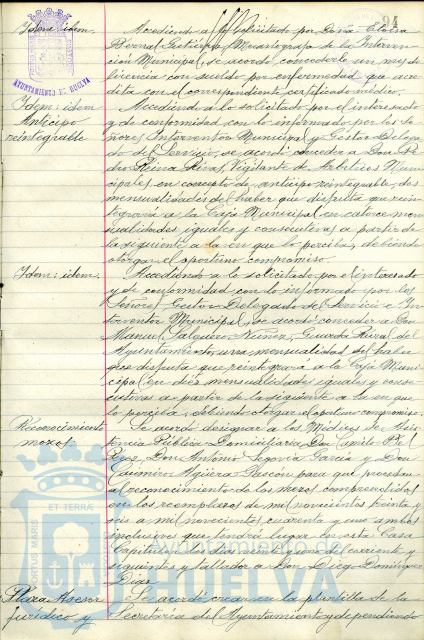 94
Idem; idem.
Accediendo a lo solicitado por Doña Eloisa
Bernal Gutiérrez, Mecanógrafa de la Interven-
ción Municipal, se acordó concederle un mes de
licencia con sueldo por enfermedad que acre-
dita con el correspondiente certificado médico.
AYUNTAMIENTO DE HUELVA
Idem; idem
Anticipo
reintegrable
Accediendo a lo solicitado por el interesado
y de conformidad con lo informado por los Se-
ñores Interventor Municipal y Gestor Delega-
do del Servicio, se acordó conceder a Don Pe-
dro Reina Rivas, Vigilante de Arbitrios Muni-
cipales, en concepto de anticipo reintegrable, dos
mensualidades del haber que disfruta que rein-
tegrará a la Caja Municipal en catorce men-
sualidades iguales y consecutivas a partir de
la siguiente a la en que lo perciba, debiendo
otorgar el oportuno compromiso.
Idem; idem;
Accediendo a lo solicitado por el interesado
y de conformidad con lo informado por los
Señores Gestor Delegado del Servicio e In-
terventor Municipal, se acordó conceder a Don
Manuel Salguero Núñez, Guarda Rural del
Ayuntamiento, una mensualidad del haber
que disfruta que reintegrará a la Caja Muni-
cipal en diez mensualidades iguales y conse-
cutivas a partir de la siguiente a la en que
lo perciba, debiendo otorgar el oportuno compromiso.
Reconocimiento
mozos
Se acordó designar a los Médicos de Asis-
tencia Pública Domiciliaria, Don Camilo
Don Antonio Segovia García y Don
Casimiro Agüera Gascón para que procedan
al reconocimiento de los mozos comprendidos
en los reemplazos de mil novecientos treinta y
seis a mil novecientos cuarenta y uno ambos
inclusive que tendrá lugar en esta Casa
Capitular los días veintiuno del corriente y
siguientes y tallador a Don Diego Domínguez
Diaz
Plaza Asesor
jurídico y
Se acordó crear en la plantilla de la
Secretaría del Ayuntamiento y dependiendo
PORTUS MARIS ET TERRÆ
Ayuntamiento de
HUELVA